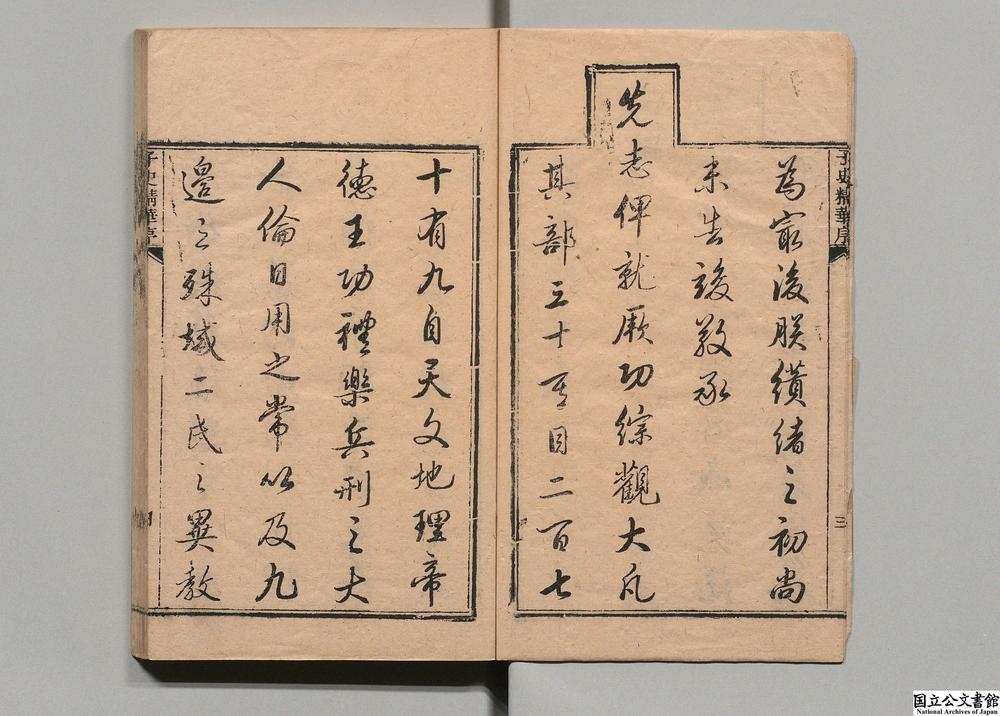 為最後朕纘緒之初尚
未告竣敬承
先志俾就厥功綜觀大凡
其部三十其目二百七
子史精華序
三
十有九自天文地理帝
德王功禮樂兵刑之大
人倫日用之常以及九
邊之殊域二氏之異教
子史精華序
国立公文書館
National Archives of Japan